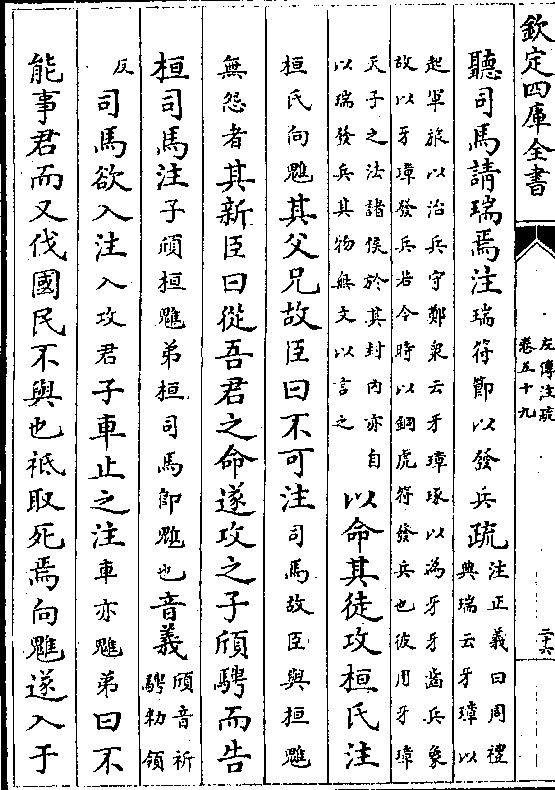 欽定四庫全書
左傳注疏
卷五十九
二十六
聽司馬請瑞焉注瑞符節以發兵疏注正義曰周禮
典瑞云牙璋以
起軍旅以治兵守鄭衆云牙璋瑑以為牙牙齒兵象
故以牙璋發兵若今時以銅虎符發兵也彼用牙璋
天子之法諸侯於其封内亦自
以瑞發兵其物無文以言之
以命其徒攻桓氏注
桓氏向魋其父兄故臣曰不可注司馬故臣與桓魋
無怨者其新臣曰從吾君之命遂攻之子頎騁而告
桓司馬注子頎桓魋弟桓司馬即魋也音義頎音祈
騁勑領
反司馬欲入注入攻君子車止之注車亦魋弟曰不
能事君而又伐國民不與也祗取死焉向魋遂入于